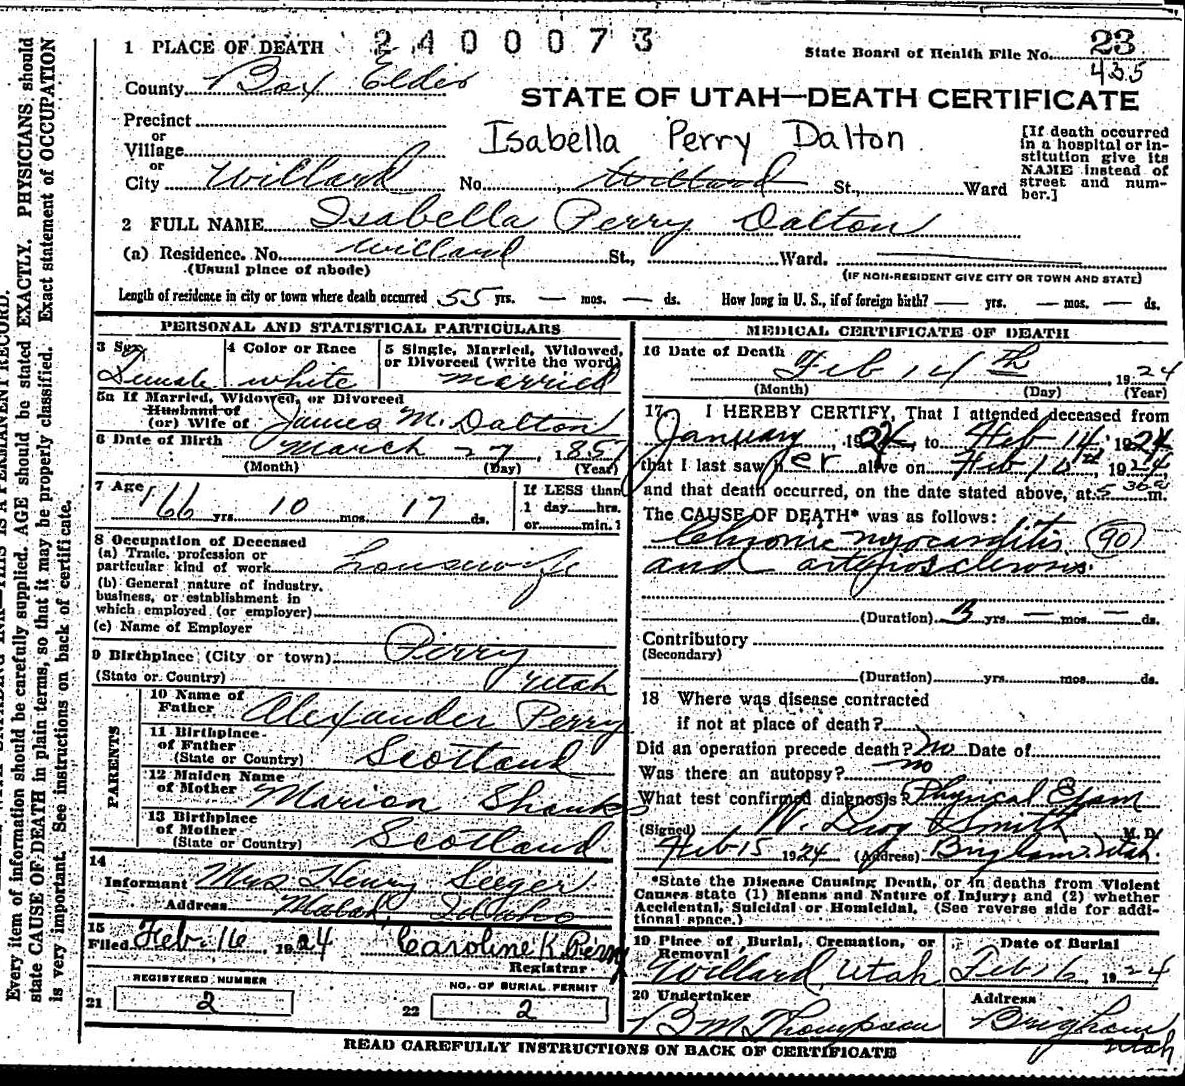 1 PLACE OF DEATH 2400073
State Board of Health File No. 23
435
County Box Elder
STATE OF UTAH—DEATH CERTIFICATE
Precinct
or
Village
or
City Willard No. Willard St., Ward
Isabella Perry Dalton
[If death occurred
in a hospital or in-
stitution give its
NAME instead of
street and num-
ber.]
2 FULL NAME Isabella Perry Dalton
(a) Residence. No. Willard St., Ward.
(Usual place of abode)
(IF NON-RESIDENT GIVE CITY OR TOWN AND STATE)
Length of residence in city or town where death occurred 55 yrs. — mos. — ds. How long in U. S., if of foreign birth? — yrs. — mos. — ds.
PERSONAL AND STATISTICAL PARTICULARS
3 Sex
Female
4 Color or Race
white
5 Single, Married, Widowed,
or Divorced (write the word)
married
5a If Married, Widowed, or Divorced
Husband of
(or) Wife of James M. Dalton
6 Date of Birth March 27, 1857
(Month) (Day) (Year)
7 Age 66 yrs. 10 mos. 17 ds.
If LESS than
1 day hrs.
or min.?
8 Occupation of Deceased
(a) Trade, profession or
particular kind of work housewife
(b) General nature of industry,
business, or establishment in
which employed (or employer)
(c) Name of Employer
9 Birthplace (City or town) Perry
(State or Country) Utah
PARENTS
10 Name of
Father Alexander Perry
11 Birthplace
of Father
(State or Country) Scotland
12 Maiden Name
of Mother Marion Shanks
13 Birthplace
of Mother
(State or Country) Scotland
14
Informant Mrs Henry Seeger
Address Malad, Idaho
15
Filed Feb. 16 1924 Caroline K. Perry
Registrar
REGISTERED NUMBER
21 2
NO. OF BURIAL PERMIT
22 2
MEDICAL CERTIFICATE OF DEATH
16 Date of Death Feb 14th, 1924
(Month) (Day) (Year)
17 I HEREBY CERTIFY, That I attended deceased from
January, 1924, to Feb 14, 1924
that I last saw her alive on Feb 10, 1924
and that death occurred, on the date stated above, at 5 30a m.
The CAUSE OF DEATH* was as follows:
Chronic myocarditis (90)
and arteriosclerosis
(Duration) 3 yrs — mos — ds.
Contributory
(Secondary)
(Duration) yrs. mos. ds.
18 Where was disease contracted
if not at place of death?
Did an operation precede death? no Date of
Was there an autopsy? no
What test confirmed diagnosis? Physical Exam
(Signed) W. Smith M. D.
Feb 15 1924 (Address) Brigham, Utah.
*State the Disease Causing Death, or in deaths from Violent
Causes state (1) Means and Nature of Injury; and (2) whether
Accidental, Suicidal or Homicidal. (See reverse side for addi-
tional space.)
19 Place of Burial, Cremation, or
Removal
Willard, Utah
Date of Burial
Feb 16, 1924
20 Undertaker
B M Thompson
Address
Brigham
Utah
READ CAREFULLY INSTRUCTIONS ON BACK OF CERTIFICATE
Every item of information should be carefully supplied. AGE should be stated EXACTLY. PHYSICIANS should
state CAUSE OF DEATH in plain terms, so that it may be properly classified. Exact statement of OCCUPATION
is very important. See instructions on back of certificate.